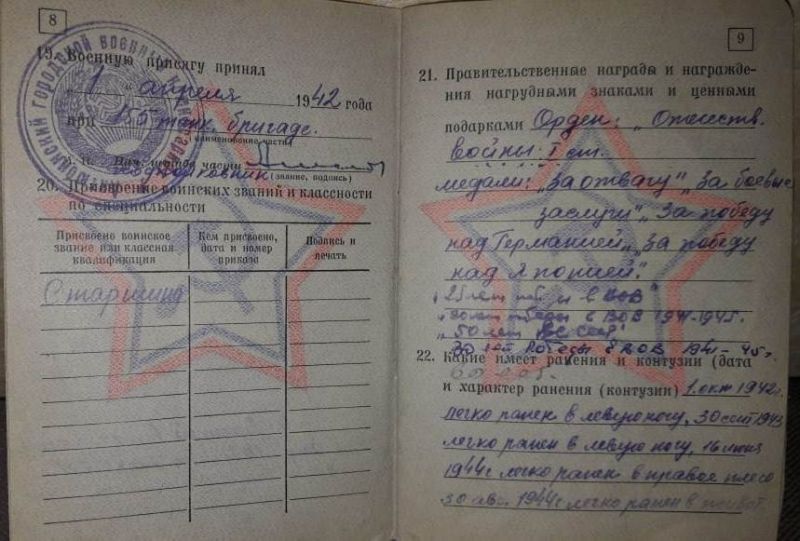 8
ГОРОДСКОЙ ВОЕННЫЙ
19. Военную присягу принял
„ 1 “ апреля 1942 года
при 155 танк. бригаде.
(наименование части)
М. П. Нач. штаба части
подполковник (звание, подпись)
20. Присвоение воинских званий и классности
по специальности
Присвоено воинское
звание или классная
квалификация
Кем присвоено,
дата и номер
приказа
Подпись и
печать
Старшина
9
21. Правительственные награды и награжде-
ния нагрудными знаками и ценными
подарками Орден: „Отечеств.
войны: I ст.
медали: „За отвагу“ „За боевые
заслуги“ „За победу
над Германией„ „За победу
над Японией“
„25 лет поб. в ВОВ“
„30 лет победы в ВОВ 1941-1945.
„50 лет ВС СССР“
победы в ВОВ 1941-45г.
22. Какие имеет ранения и контузии (дата
и характер ранения (контузии) 1.окт 1942г.
легко ранен в левую ногу, 30 сент 1943
легко ранен в левую ногу, 16 июня
1944г легко ранен в правое плечо
30 авг. 1944г легко ранен в живот